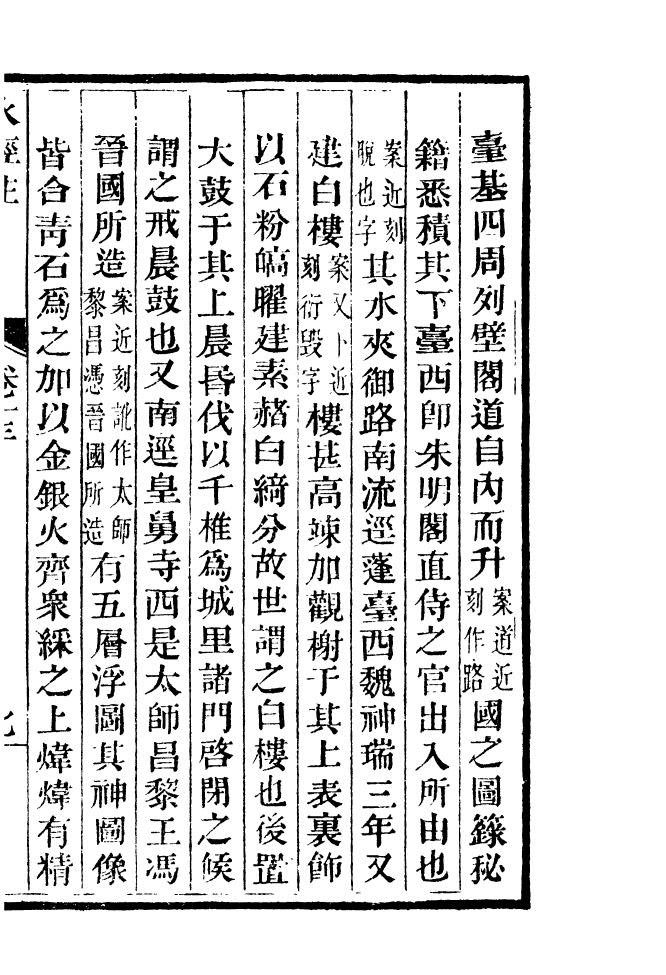 臺基四周列壁閣道自內而升案道近刻作路國之圖籙秘
籍悉積其下臺西卽朱明閣直侍之官出入所由也
案近刻脫也字其水夾御路南流逕蓬臺西魏神瑞三年又
建白樓案又卜近刻衍毀字樓甚高竦加觀榭于其上表裏飾
以石粉皜曜建素赭白綺分故世謂之白樓也後置
大鼓于其上晨昏伐以千椎爲城里諸門啓閉之候
謂之戒晨鼓也又南逕皇舅寺西是太師昌黎王馮
晉國所造案近刻訛作太師黎昌憑晉國所造有五層浮圖其神圖像
皆合靑石爲之加以金銀火齊衆綵之上煒煒有精
水經注 卷十三 九